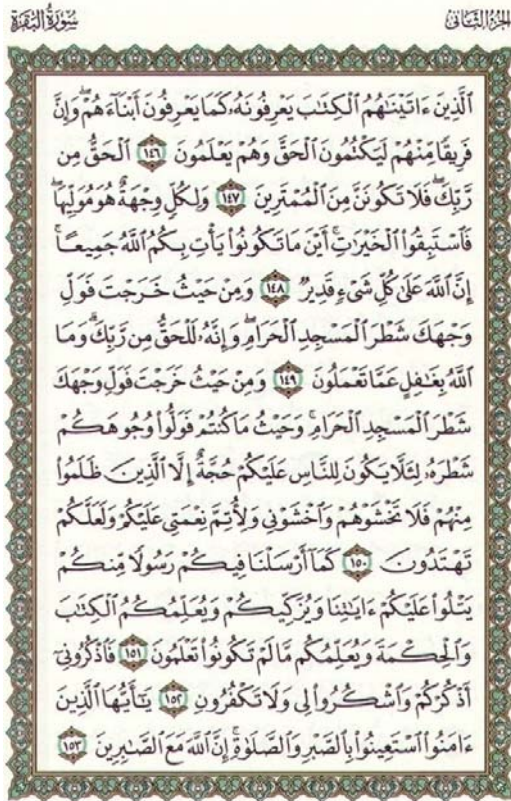 الجزء الثاني
سورة البقرة
ٱلَّذِينَ ءَاتَيْنَٰهُمُ ٱلْكِتَٰبَ يَعْرِفُونَهُۥ كَمَا يَعْرِفُونَ أَبْنَآءَهُمْ ۖ وَإِنَّ
فَرِيقًا مِّنْهُمْ لَيَكْتُمُونَ ٱلْحَقَّ وَهُمْ يَعْلَمُونَ ١٤٦ ٱلْحَقُّ مِن
رَّبِّكَ ۖ فَلَا تَكُونَنَّ مِنَ ٱلْمُمْتَرِينَ ١٤٧ وَلِكُلٍّ وِجْهَةٌ هُوَ مُوَلِّيهَا ۖ
فَٱسْتَبِقُوا۟ ٱلْخَيْرَٰتِ ۚ أَيْنَ مَا تَكُونُوا۟ يَأْتِ بِكُمُ ٱللَّهُ جَمِيعًا ۚ
إِنَّ ٱللَّهَ عَلَىٰ كُلِّ شَىْءٍ قَدِيرٌ ١٤٨ وَمِنْ حَيْثُ خَرَجْتَ فَوَلِّ
وَجْهَكَ شَطْرَ ٱلْمَسْجِدِ ٱلْحَرَامِ ۖ وَإِنَّهُۥ لَلْحَقُّ مِن رَّبِّكَ ۗ وَمَا
ٱللَّهُ بِغَٰفِلٍ عَمَّا تَعْمَلُونَ ١٤٩ وَمِنْ حَيْثُ خَرَجْتَ فَوَلِّ وَجْهَكَ
شَطْرَ ٱلْمَسْجِدِ ٱلْحَرَامِ ۚ وَحَيْثُ مَا كُنتُمْ فَوَلُّوا۟ وُجُوهَكُمْ
شَطْرَهُۥ لِئَلَّا يَكُونَ لِلنَّاسِ عَلَيْكُمْ حُجَّةٌ إِلَّا ٱلَّذِينَ ظَلَمُوا۟
مِنْهُمْ فَلَا تَخْشَوْهُمْ وَٱخْشَوْنِى وَلِأُتِمَّ نِعْمَتِى عَلَيْكُمْ وَلَعَلَّكُمْ
تَهْتَدُونَ ١٥٠ كَمَآ أَرْسَلْنَا فِيكُمْ رَسُولًا مِّنكُمْ
يَتْلُوا۟ عَلَيْكُمْ ءَايَٰتِنَا وَيُزَكِّيكُمْ وَيُعَلِّمُكُمُ ٱلْكِتَٰبَ
وَٱلْحِكْمَةَ وَيُعَلِّمُكُم مَّا لَمْ تَكُونُوا۟ تَعْلَمُونَ ١٥١ فَٱذْكُرُونِىٓ
أَذْكُرْكُمْ وَٱشْكُرُوا۟ لِى وَلَا تَكْفُرُونِ ١٥٢ يَٰٓأَيُّهَا ٱلَّذِينَ
ءَامَنُوا۟ ٱسْتَعِينُوا۟ بِٱلصَّبْرِ وَٱلصَّلَوٰةِ ۚ إِنَّ ٱللَّهَ مَعَ ٱلصَّٰبِرِينَ ١٥٣